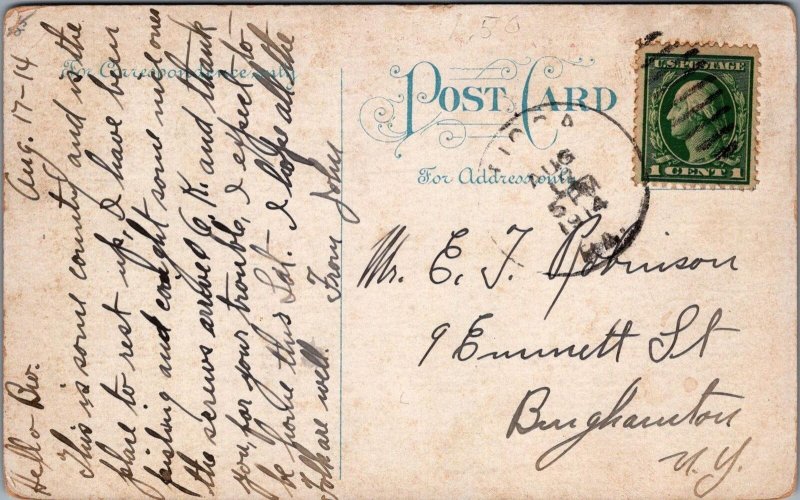 Aug. 17-14
Hello Bro.
This is some country and is the
place to rest up, I have been
fishing and caught some nice ones
the screws arrived O.K. and thank
you for your trouble, I expect to
be home this Sat. I hope all the
folk are well. From John
For Correspondence only
POST CARD
For Address only
AUG
5 PM
1914
PA.
U.S. POSTAGE
1 CENT 1
Mr. E. J. Robinson
9 Emmett St
Binghamton
N.Y.